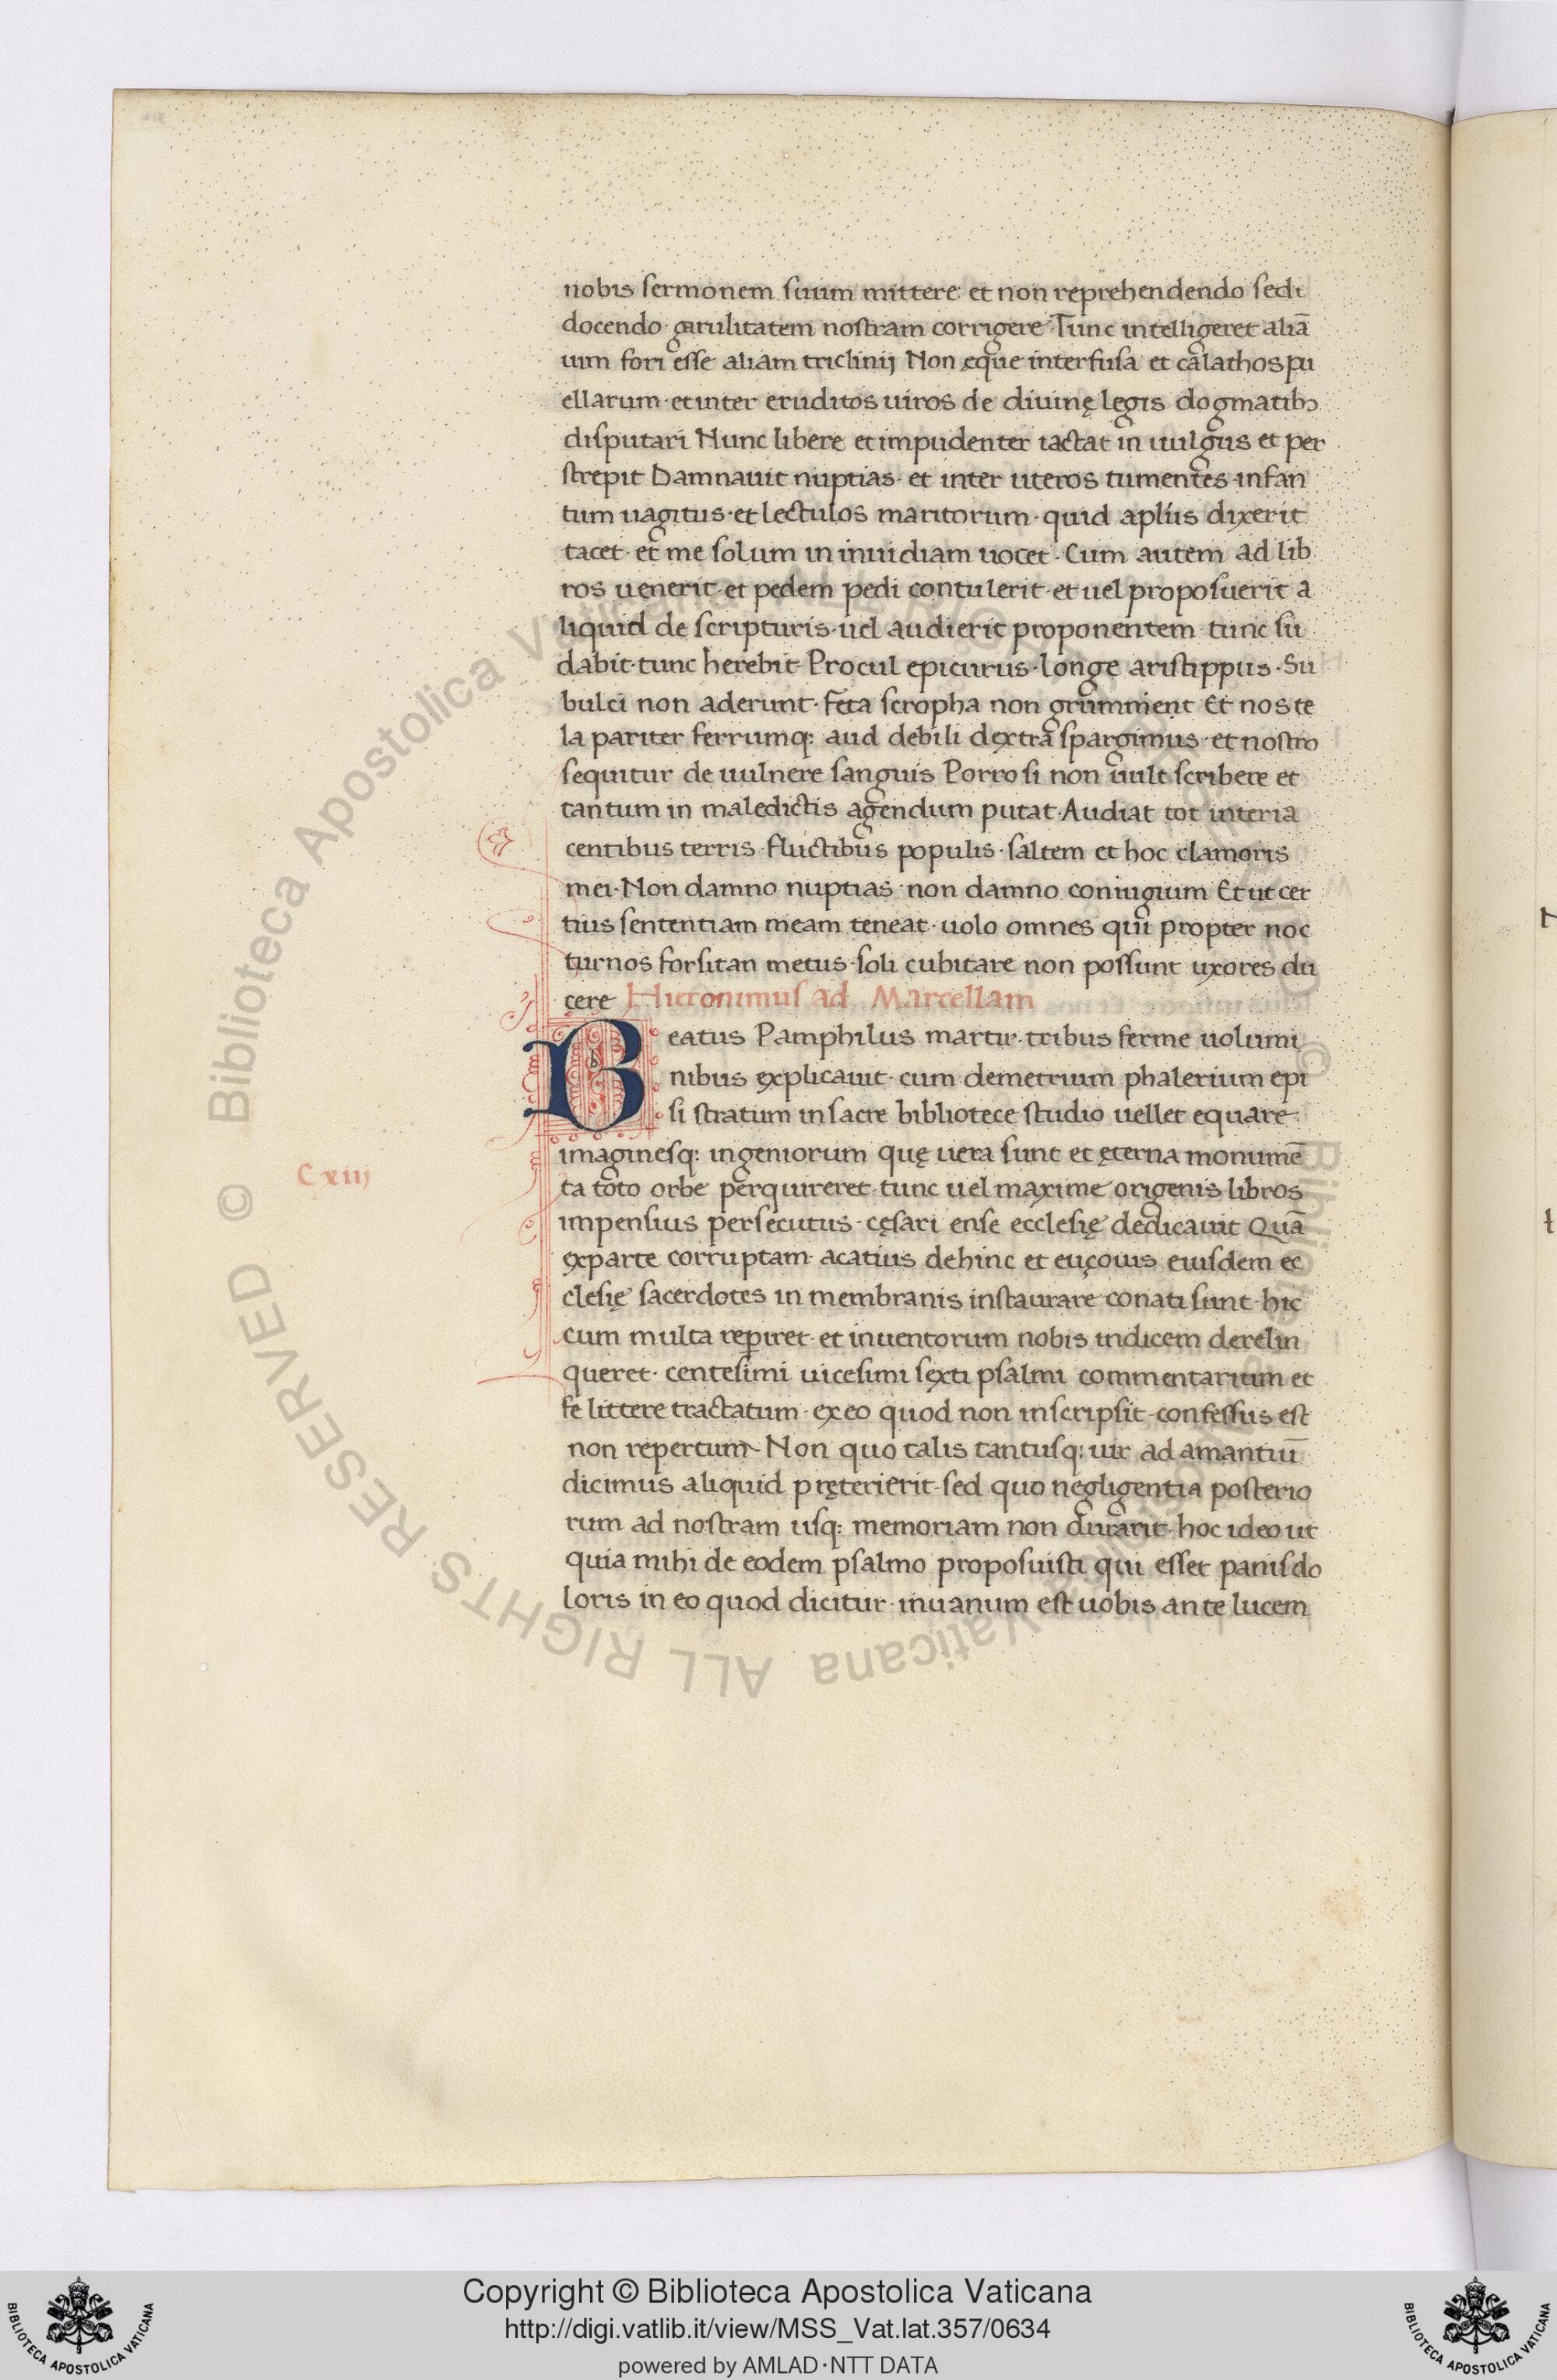 nobis sermonem suum mittere et non reprehendendo sed i
docendo · garulitatem nostram corrigere Tunc intelligeret aliā
uim fori esse aliam triclinij Non eque inter fusa et calathos pu
ellarum · et inter eruditos uiros de diuinę legis dogmatibꝫ
disputari Nunc libere et impudenter iactat in uulgus et per
strepit Damnauit nuptias · et inter uteros tumentes · infan
tum uagitus · et lectulos maritorum · quid apl'us dixerit
tacet · et me solum in inuidiam uocet · Cum autem ad lib
ros uenerit · et pedem pedi contulerit · et uel proposuerit a
liquid de scripturis · uel audierit proponentem tunc su
dabit · tunc herebit Procul epicurus · longe aristippus · Su
bulci non aderunt · feta scropha non grumnient Et nos te
la pariter ferrumq: aud debili dextra spargimus · et nostro
sequitur de uulnere sanguis Porro si non uult scribere et
tantum in maledictis agendum putat · Audiat tot interia
centibus terris · fluctibus populis · saltem et hoc clamoris
mei · Non damno nuptias · non damno coniugium Et ut cer
tius sententiam meam teneat · uolo omnes qui propter noc
turnos forsitan metus · soli cubitare non possunt uxores du
cere Hieronimus ad Marcellam
Beatus Pamphilus martir · tribus ferme uolumi
nibus explicauit · cum demetrium phalerium epi
si stratum in sacre bibliotece studio uellet equare
imaginesq: ingeniorum quę uera sunt et ęterna monumē
Cxiij
ta toto orbe perquireret · tunc uel maxime origenis libros
impensius persecutus · cęsari ense ecclesię dedicauit Quā
ex parte corruptam · acatius dehinc et euçouis eiusdem ec
clesię sacerdotes in membranis instaurare conati sunt · hic
cum multa reperiret · et inuentorum nobis indicem derelin
queret · centesimi uicesimi sexti psalmi commentarium et
fe littere tractatum · ex eo quod non inscripsit · confessus est
non repertum Non quo talis tantusq: uir adamantiū
dicimus aliquid pręterierit · sed quo negligentia posterio
rum ad nostram usq: memoriam non durarit · hoc ideo ut
quia mihi de eodem psalmo proposuisti qui esset panis do
loris in eo quod dicitur · inuanum est uobis ante lucem
© Biblioteca Apostolica Vaticana ALL RIGHTS RESERVED
© Biblioteca Apostolica Vaticana ALL RIGHTS RESERVED
Copyright © Biblioteca Apostolica Vaticana
http://digi.vatlib.it/view/MSS_Vat.lat.357/0634
powered by AMLAD·NTT DATA
BIBLIOTECA APOSTOLICA VATICANA
BIBLIOTECA APOSTOLICA VATICANA